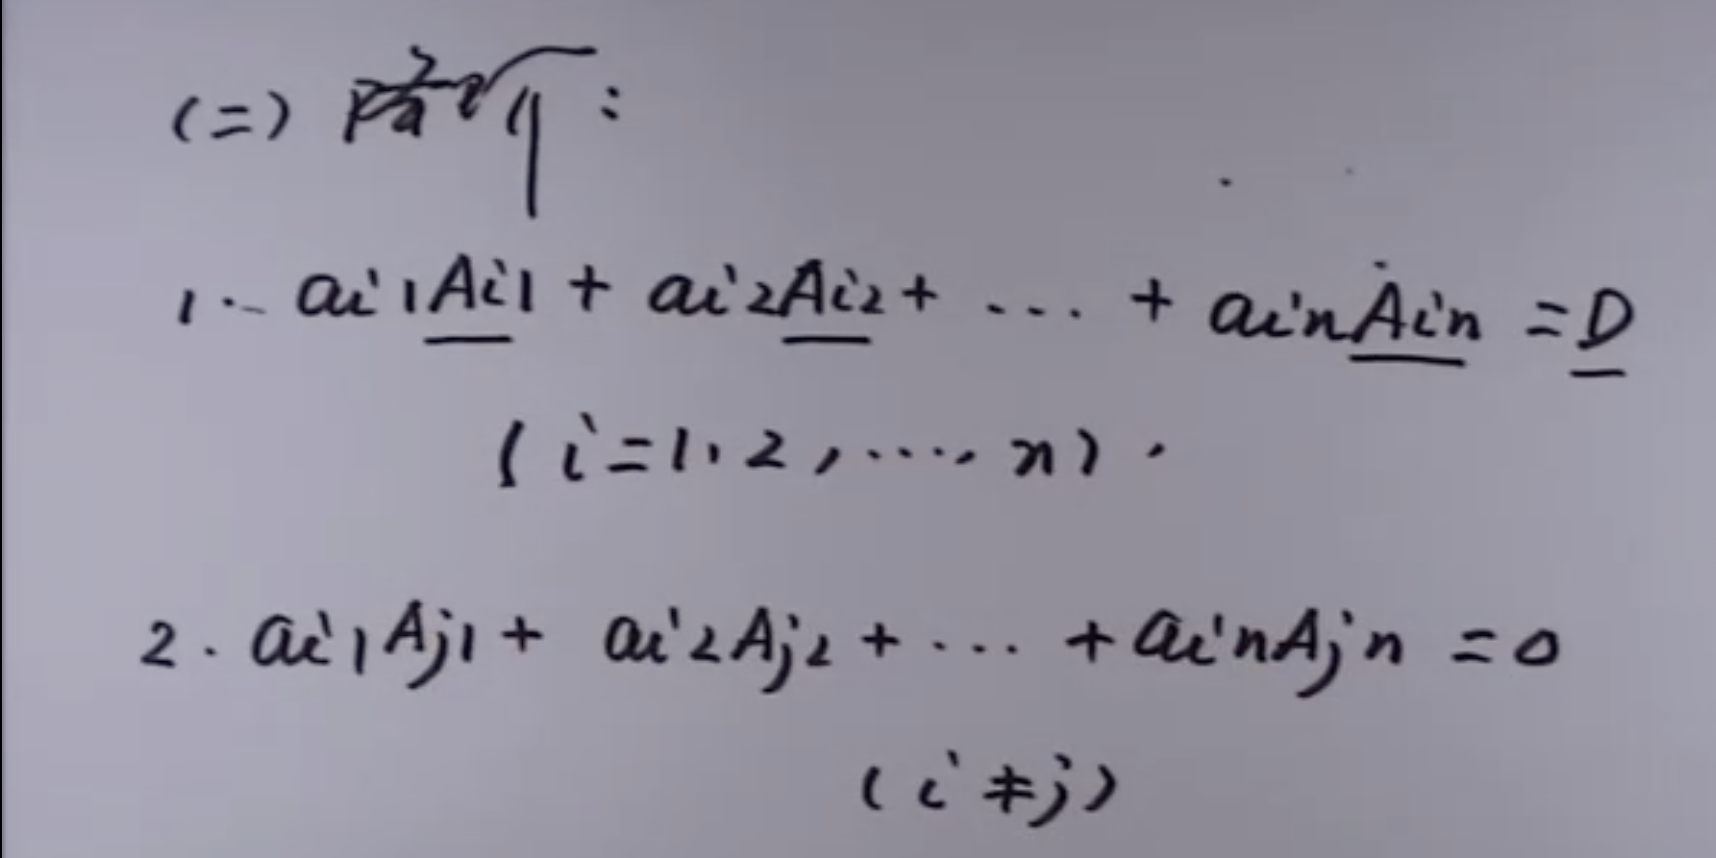 (二) 降阶:
1. ai1Ai1 + ai2Ai2 + ... + ainAin = D
(i=1,2,...,n).
2. ai1Aj1 + ai2Aj2 + ... + ainAjn = 0
(i≠j)